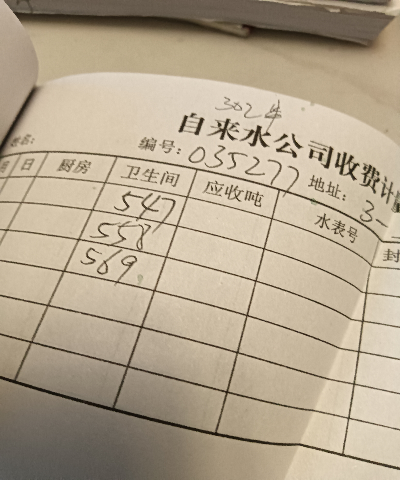 302牛
自来水公司收费计
姓名: 编号:035277 地址:3-
月 日 厨房 卫生间 应收吨 水表号 封
547
558
569